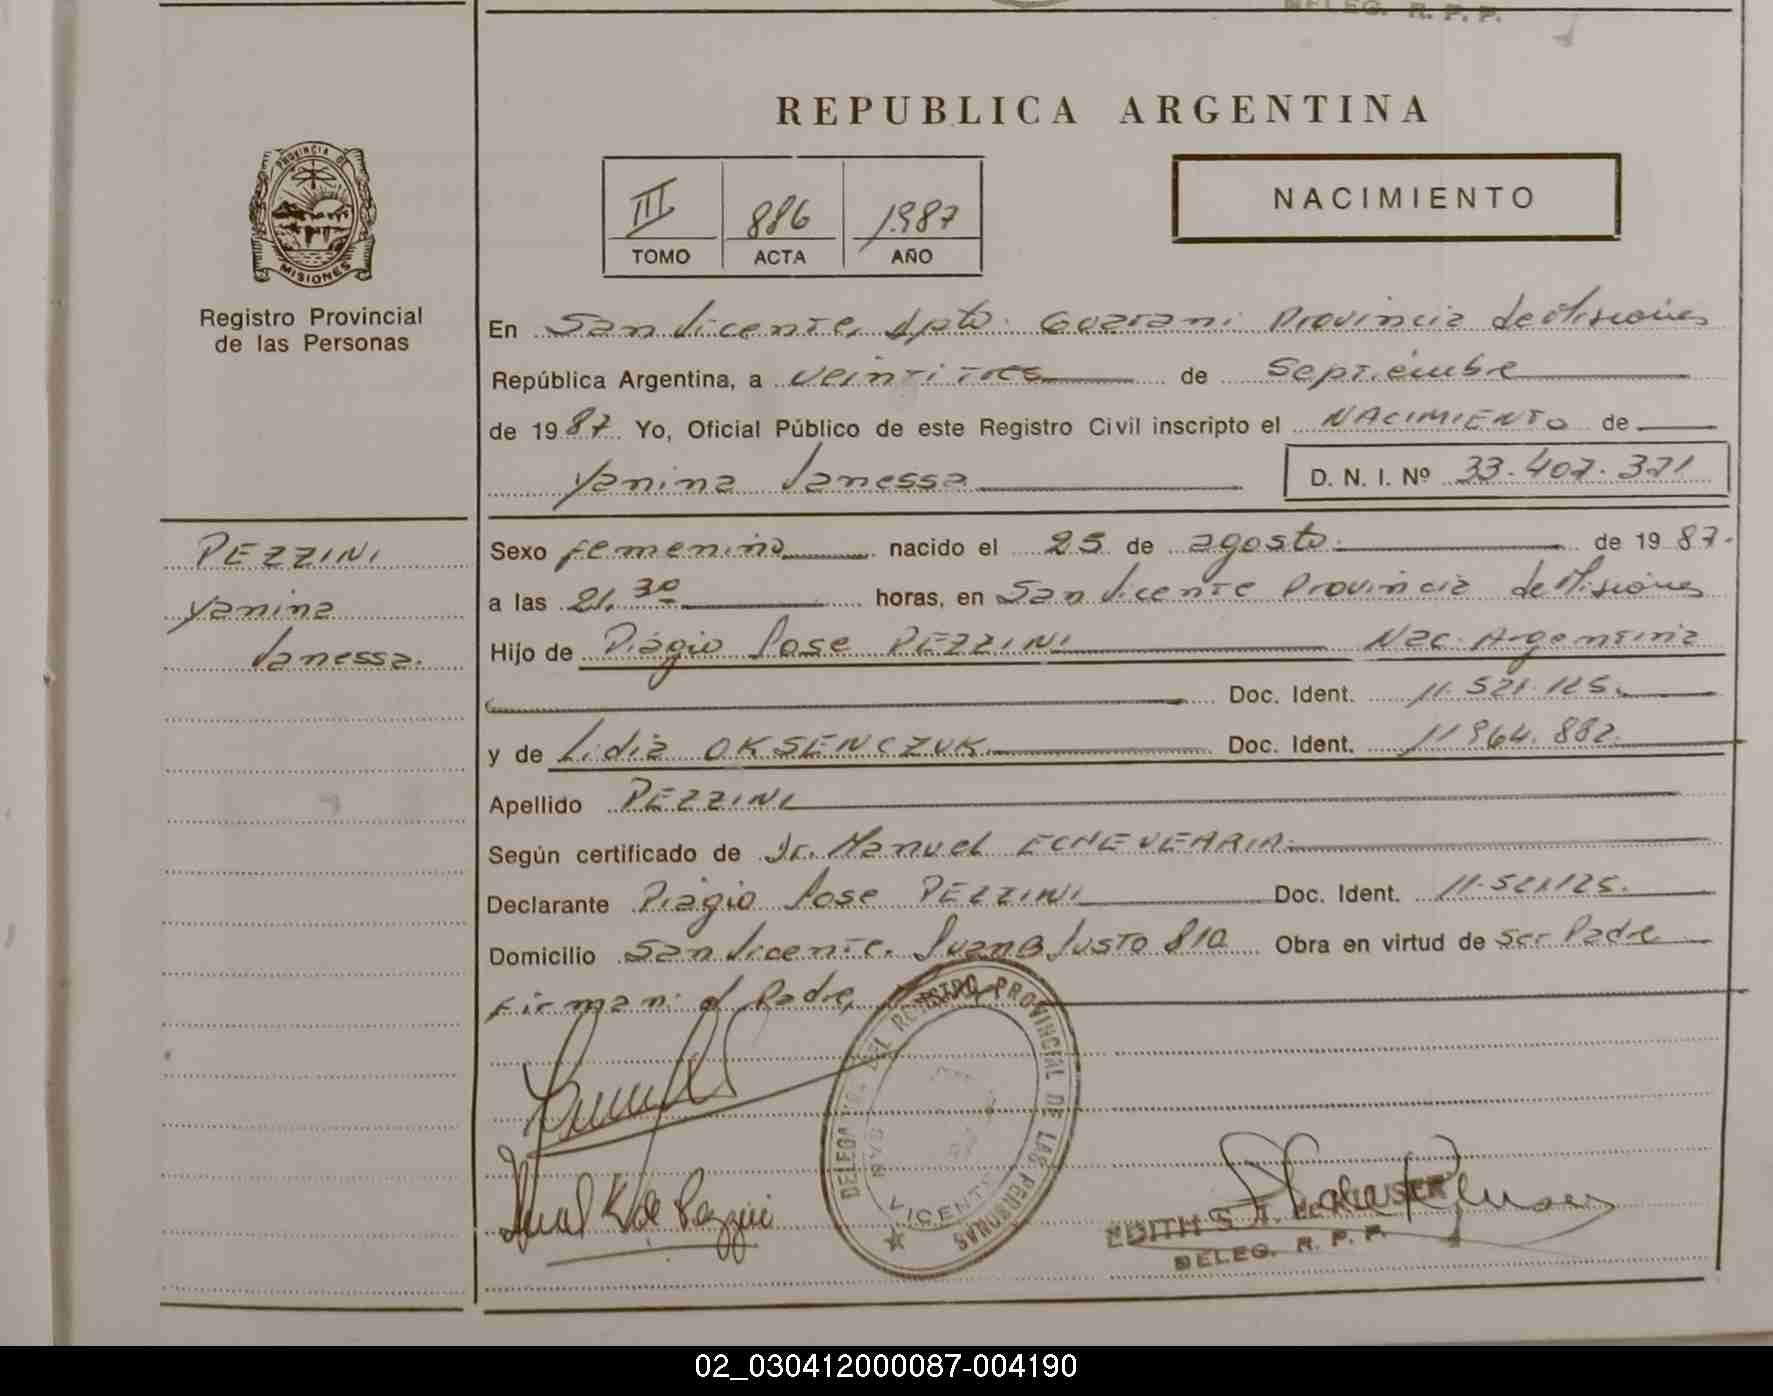 DELEG. R. P. P.
REPUBLICA ARGENTINA
PROVINCIA DE
MISIONES
Registro Provincial
de las Personas
III 886 1987
TOMO ACTA AÑO
NACIMIENTO
En San Vicente, Dpto. Guarani Provincia de Misiones
República Argentina, a veintitres de Septiembre
de 1987. Yo, Oficial Público de este Registro Civil inscripto el NACIMIENTO de
Yanina Vanessa D. N. I. Nº 33.407.371
PEZZINI
Yanina
Vanessa.
Sexo femenino nacido el 25 de agosto. de 1987.
a las 21.30 horas, en San Vicente Provincia de Misiones
Hijo de Piagio Jose PEZZINI Nac. Argentina
Doc. Ident. 11.521.125.
y de Lidia OKSENCZUK Doc. Ident. 11964.882.
Apellido PEZZINI
Según certificado de Dr. Manuel ECHEVEARIA.
Declarante Piagio Jose PEZZINI Doc. Ident. 11.521.125.
Domicilio San Vicente. Juan B Justo 810 Obra en virtud de ser Padre
Firman: el Padre,
DELEGA DEL REGISTRO PROVINCIAL DE LAS PERSONAS
SAN VICENTE
EDITH S. T. de
DELEG. R. P. P.
02_030412000087-004190